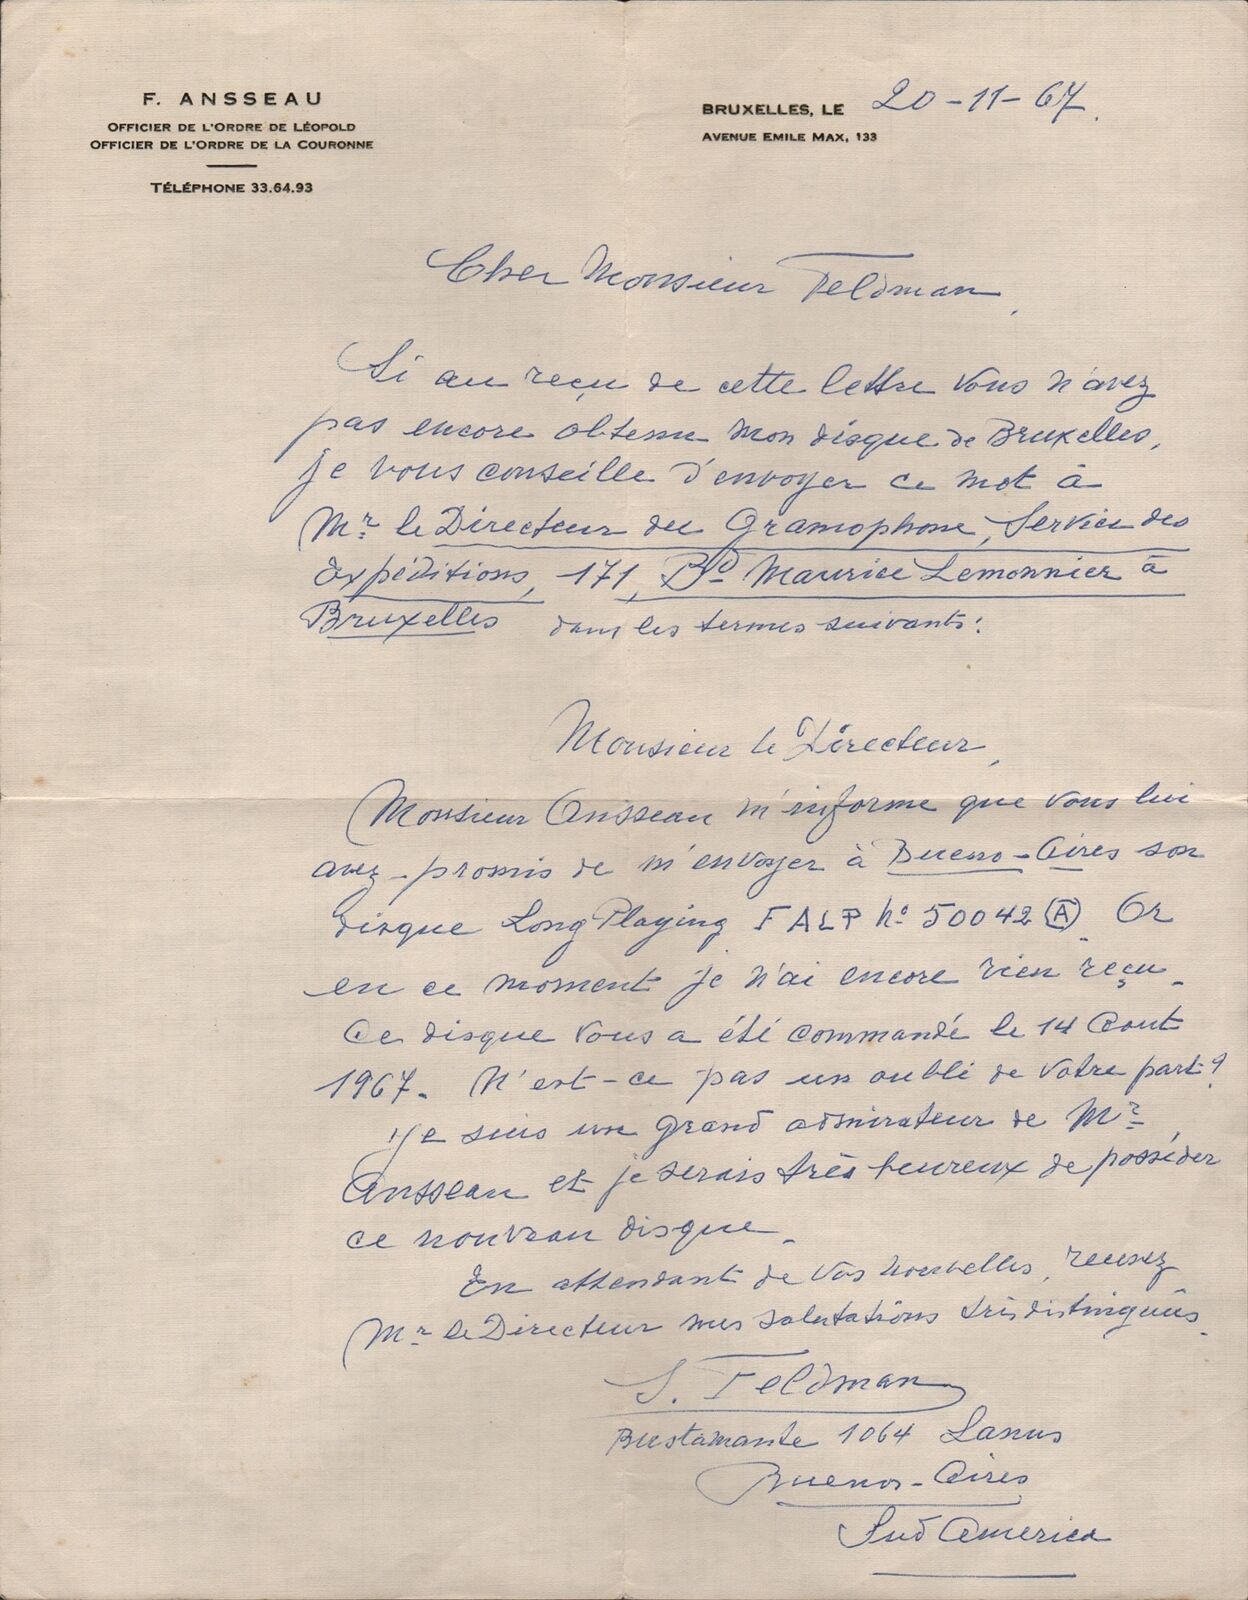 F. ANSSEAU
OFFICIER DE L'ORDRE DE LÉOPOLD
OFFICIER DE L'ORDRE DE LA COURONNE
TÉLÉPHONE 33.64.93
BRUXELLES, LE 20-11-67.
AVENUE EMILE MAX, 133
Cher Monsieur Feldman,
Si au reçu de cette lettre vous n'avez
pas encore obtenu mon disque de Bruxelles,
je vous conseille d'envoyer ce mot à
Mr. le Directeur du Gramophone, Service des
Expéditions, 171, Bd Maurice Lemonnier à
Bruxelles dans les termes suivants:
Monsieur le Directeur,
Monsieur Ansseau m'informe que vous lui
avez promis de m'envoyer à Bueno-Aires son
disque Long Playing FALP No 50042 (A). Or
en ce moment je n'ai encore rien reçu.
Ce disque vous a été commandé le 14 Aout
1967. N'est-ce pas un oubli de votre part?
Je suis un grand admirateur de Mr.
Ansseau et je serais très heureux de posséder
ce nouveau disque.
En attendant de vos nouvelles, recevez
Mr. le Directeur mes salutations très distinguées.
S. Feldman
Bustamante 1064 Lanus
Buenos-Aires
Sud America